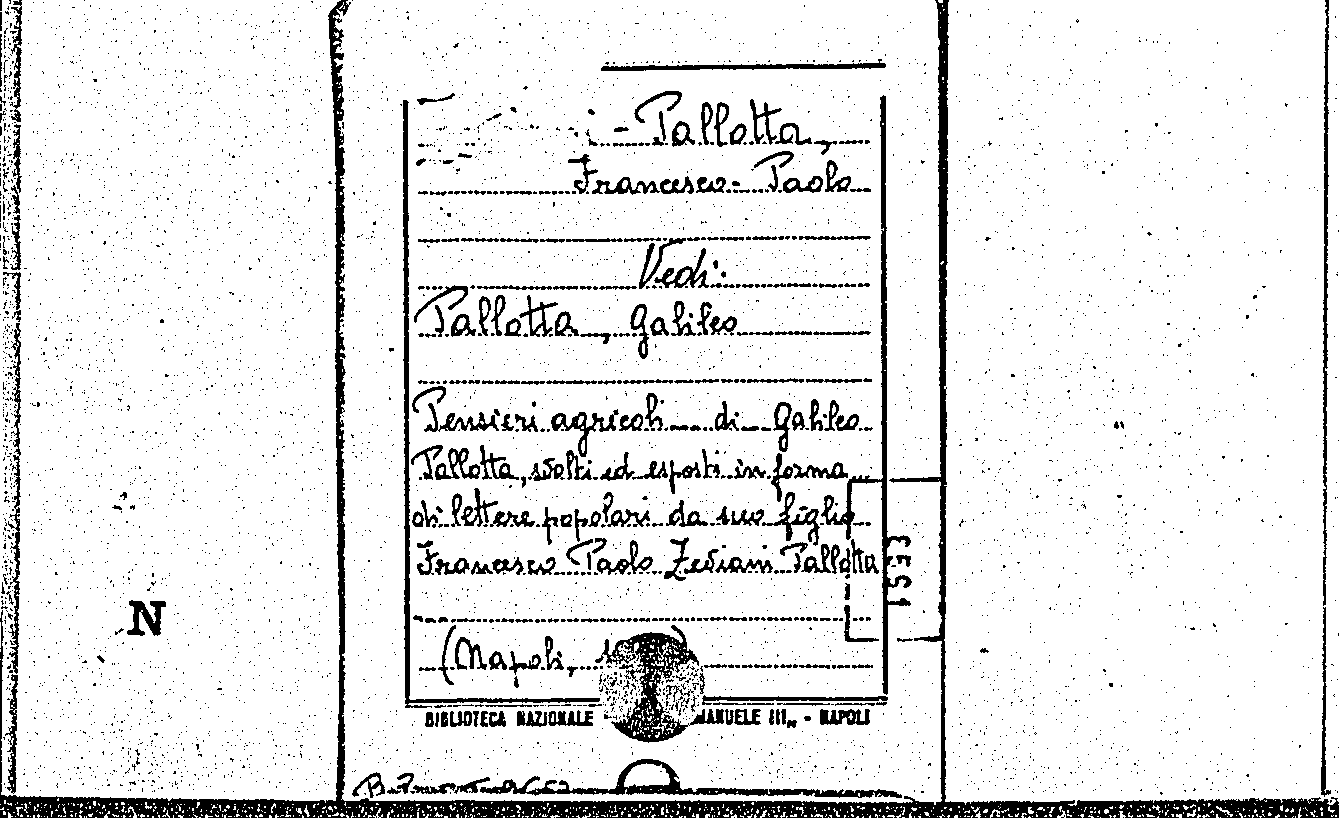 - Pallotta,
Francesco - Paolo
Vedi:
Pallotta, Galileo
Pensieri agricoli di Galileo
Pallotta, svolti ed esposti in forma
di lettere popolari da suo figlio
Francesco Paolo Zediani Pallotta
(Napoli,
BIBLIOTECA NAZIONALE III„ - NAPOLI
N